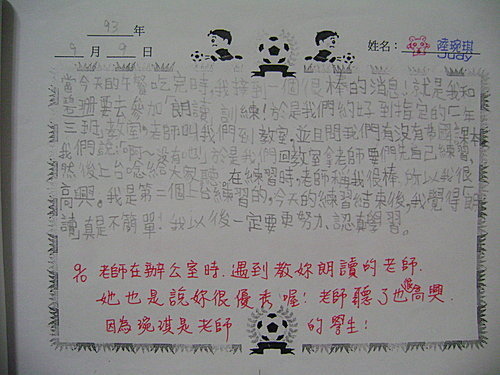 93 年
9 月 9 日 姓名: 陸琬琪
Judy
當今天的午餐吃完時,我接到一個很棒的消息!就是我和
慧珊要去參加「朗讀」訓練!於是我們約好到指定的「一年
三班」教室,老師叫我們到教室,並且問我們有沒有帶國語課本
我們說:「啊~沒有也」於是我們回教室拿老師要們先自己練習,
然後上台念給大家聽,在練習時,老師稱我很棒,所以我很
高興。我是第二個上台練習的,今天的練習結束後,我覺得「朗
讀」真是不簡單!我以後一定要更努力、認真學習。
9/10 老師在辦公室時,遇到教妳朗讀的老師.
她也是說妳很優秀喔!老師聽了也很高興.
因為琬琪是老師 的學生!